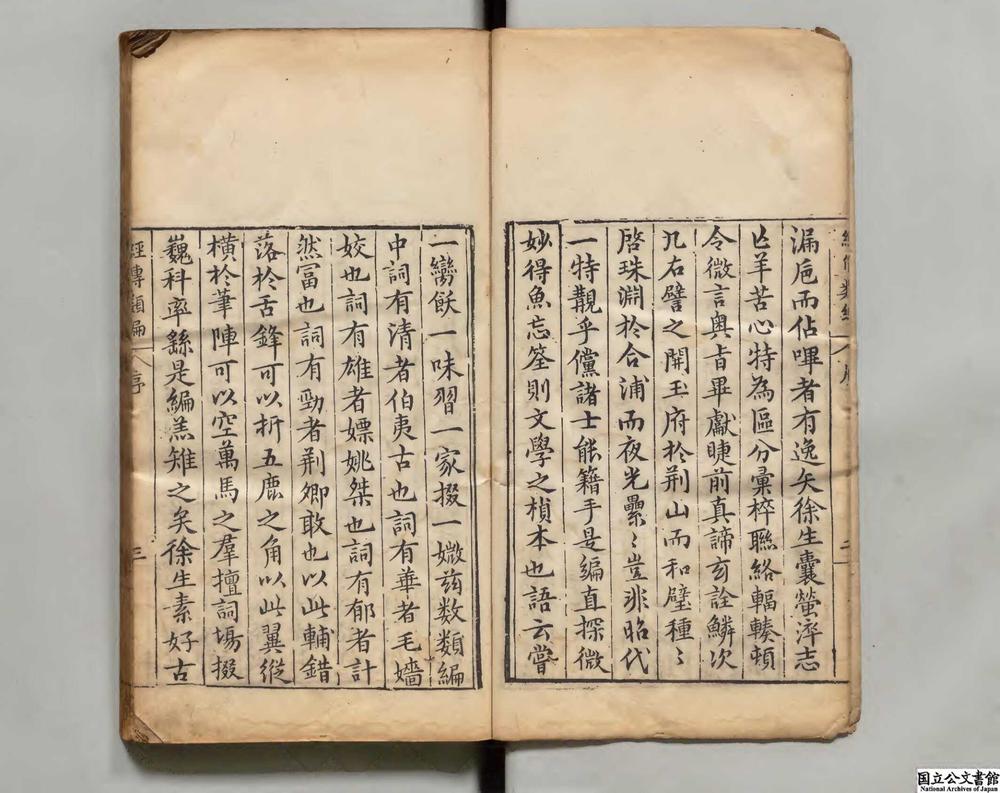 漏巵而佔嗶者有逸矣徐生囊螢濟志
亡羊苦心特為區分彙椊聯絡輻輳頓
令微言奧㫖畢獻睫前真諦玄詮鱗次
几右譬之開玉府於荆山而和璧種〻
啓珠淵於合浦而夜光纍〻豈非昭代
一特覯乎儻諸士能籍手是編直探微
妙得魚忘筌則文學之楨本也語云嘗
一臠飫一味習一家掇一媺茲数類編
中詞有清者伯夷古也詞有華者毛嬙
姣也詞有雄者嫖姚桀也詞有郁者計
然冨也詞有勁者荆卿敢也以此輔錯
落於舌鋒可以折五鹿之角以此翼縱
橫於筆陣可以空萬馬之羣擅詞塲掇
巍科率繇是編羔雉之矣徐生素好古
經傳類編
序
三
National Archives of Japan
国立公文書館